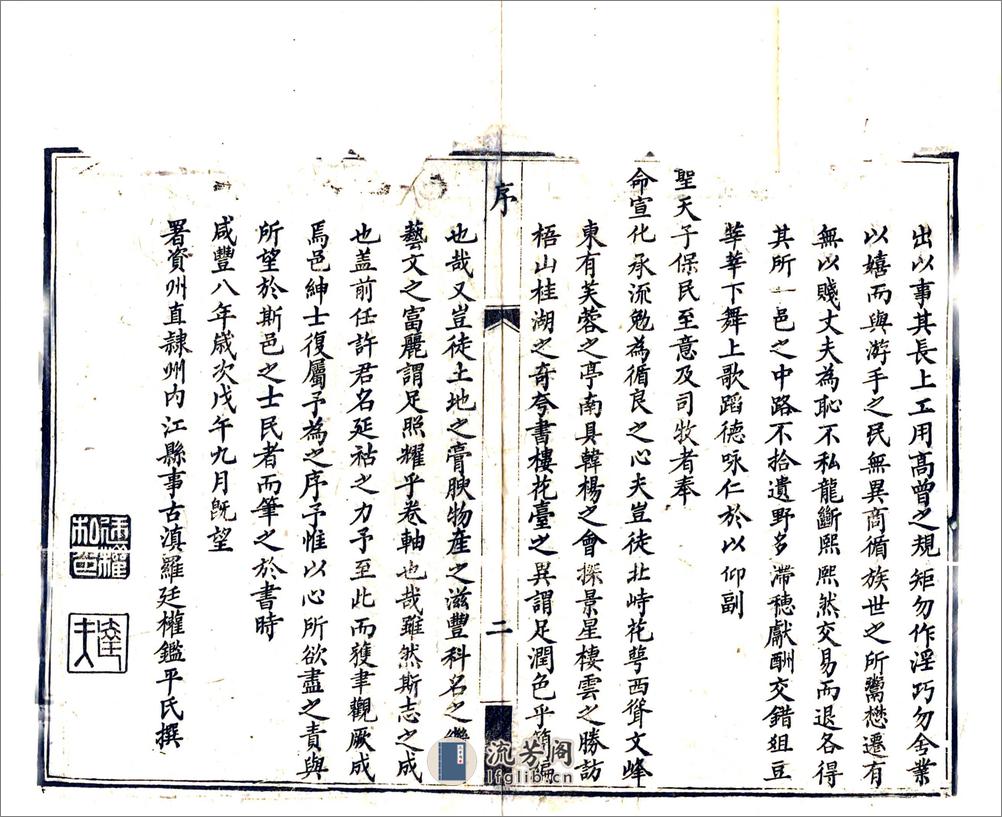 出以事其長上工用高曾之規矩勿作淫巧勿舍業
以嬉而與游手之民無異商循族世之所鬻懋遷有
無以賤丈夫為恥不私龍斷熙熙然交易而退各得
其所一邑之中路不拾遺野多滯穗獻酬交錯俎豆
莘莘下舞上歌蹈德咏仁於以仰副
聖天子保民至意及司牧者奉
命宣化承流勉為循良之心夫豈徒北峙花萼西聳文峰
東有芙蓉之亭南具韓楊之會探景星棲雲之勝訪
梧山桂湖之奇夸書樓花臺之異謂足潤色乎簡編
序
二
也哉又豈徒土地之膏腴物產之滋豐科名之
藝文之富麗謂足照耀乎卷軸也哉雖然斯志之成
也蓋前任許君名延祜之力予至此而獲聿觀厥成
焉邑紳士復屬予為之序予惟以心所欲盡之責與
所望於斯邑之士民者而筆之於書時
咸豐八年歲次戊午九月既望
署資州直隸州內江縣事古滇羅廷權鑑平氏撰
流芳阁
lfglib.cn